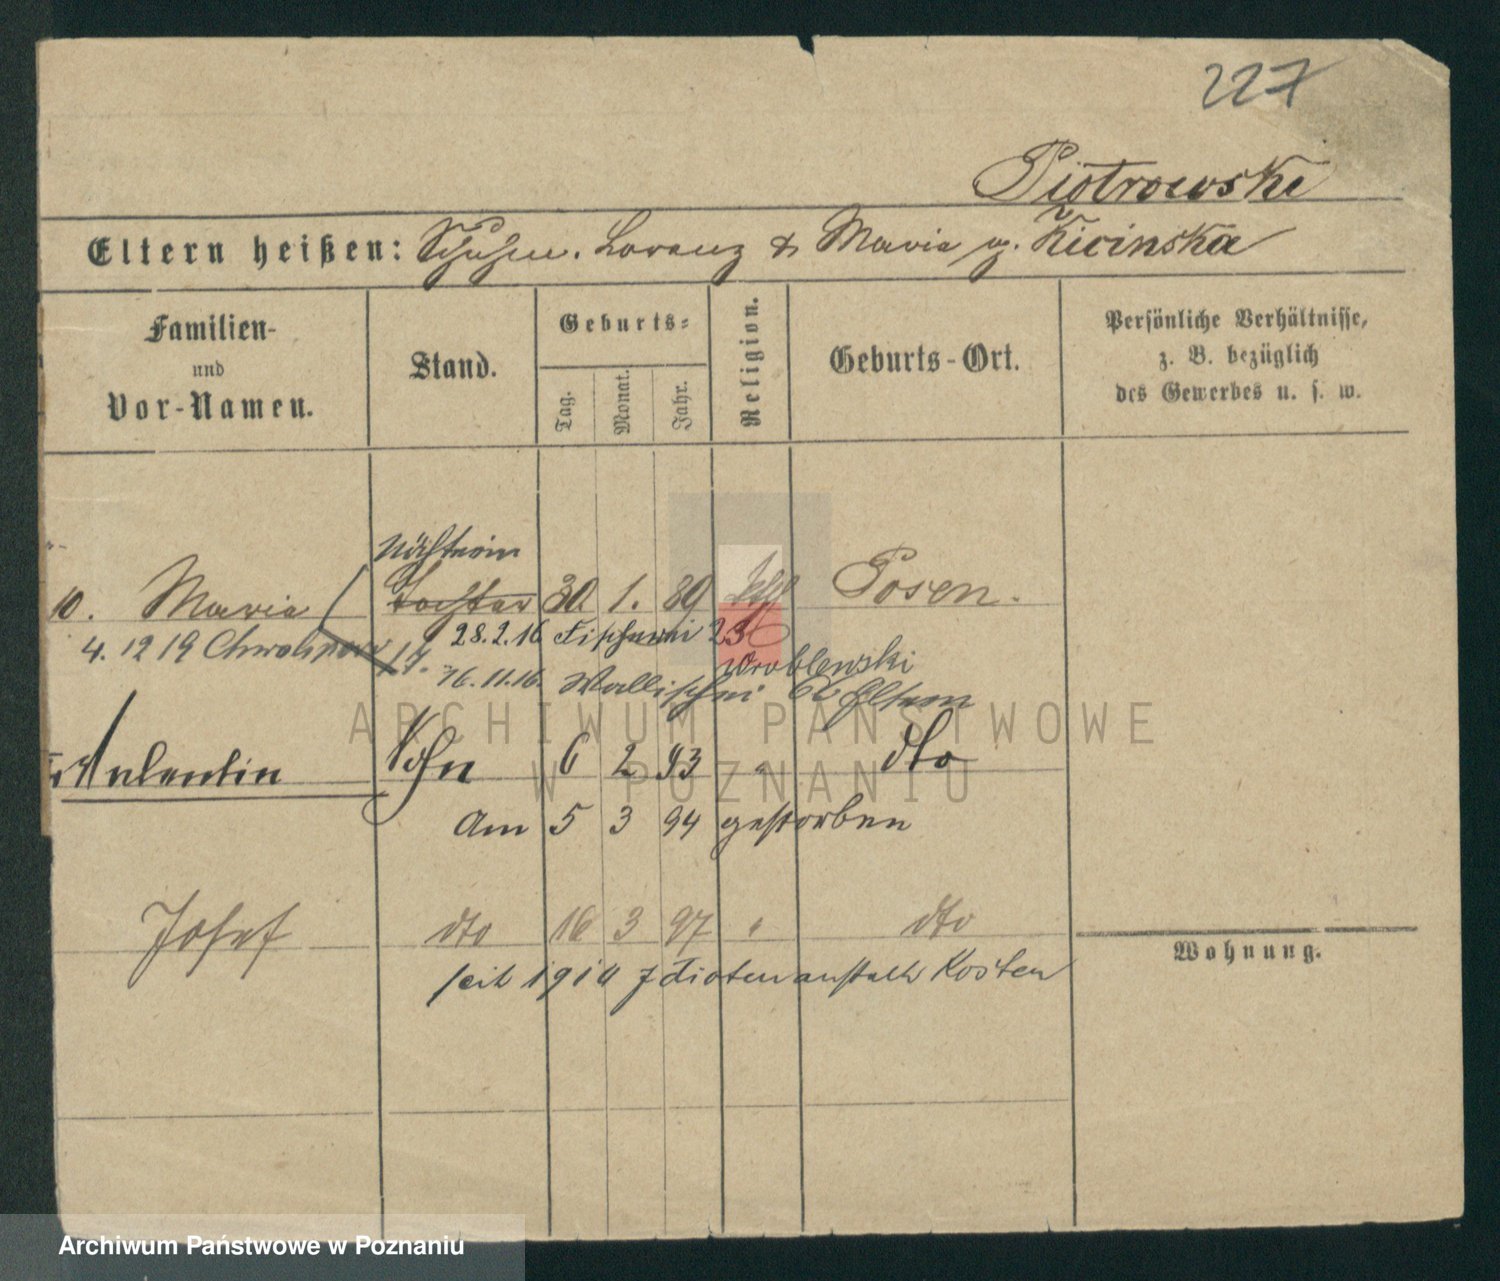 227
Piotrowski
Eltern heißen: Schuhm. Lorenz & Maria g. Kicinska
Familien-
und
Vor-Namen.
Stand.
Geburts-
Tag.
Monat.
Jahr.
Religion.
Geburts-Ort.
Persönliche Verhältnisse,
z. B. bezüglich
des Gewerbes u. s. w.
Nähterin
10. Maria Tochter 30. 1. 89 kth Posen.
28.2.16 Fischerei 23
4. 12 19 17. Wroblewski
16.11.16. Wallischei Eltern
Valentin Sohn 6 2 93 " dto
Am 5 3 94 gestorben
Josef dto 16 3 97 " dto
seit 1910 Idiotenanstalt Kosten
Wohnung.
ARCHIWUM PAŃSTWOWE
W POZNANIU
Archiwum Państwowe w Poznaniu